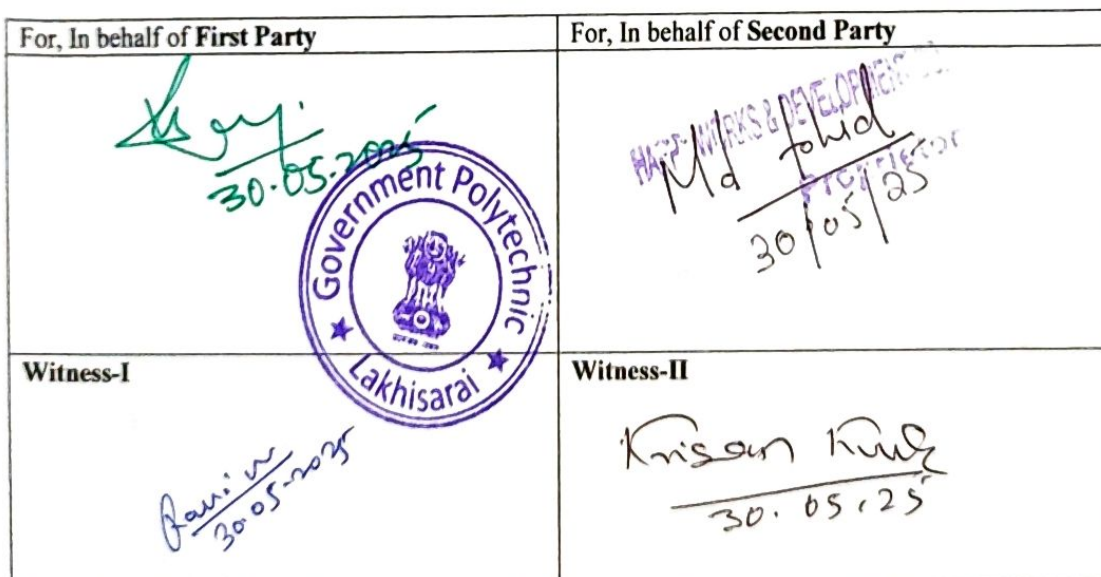 For, In behalf of First Party
For, In behalf of Second Party
30.05.2025
Government Polytechnic
Lakhisarai
WORKS & DEVELOPMENT
Md
Proprietor
30/05/25
Witness-I
Witness-II
30.05.2025
Krisan
30.05.25